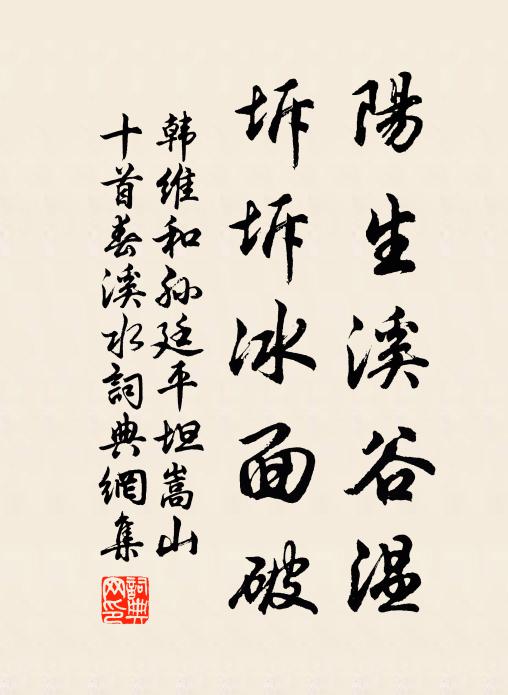 陽生溪谷溫
坼坼冰面破
韓維和孫廷平坦嵩山
十首春溪水詞典網集
詞典網印